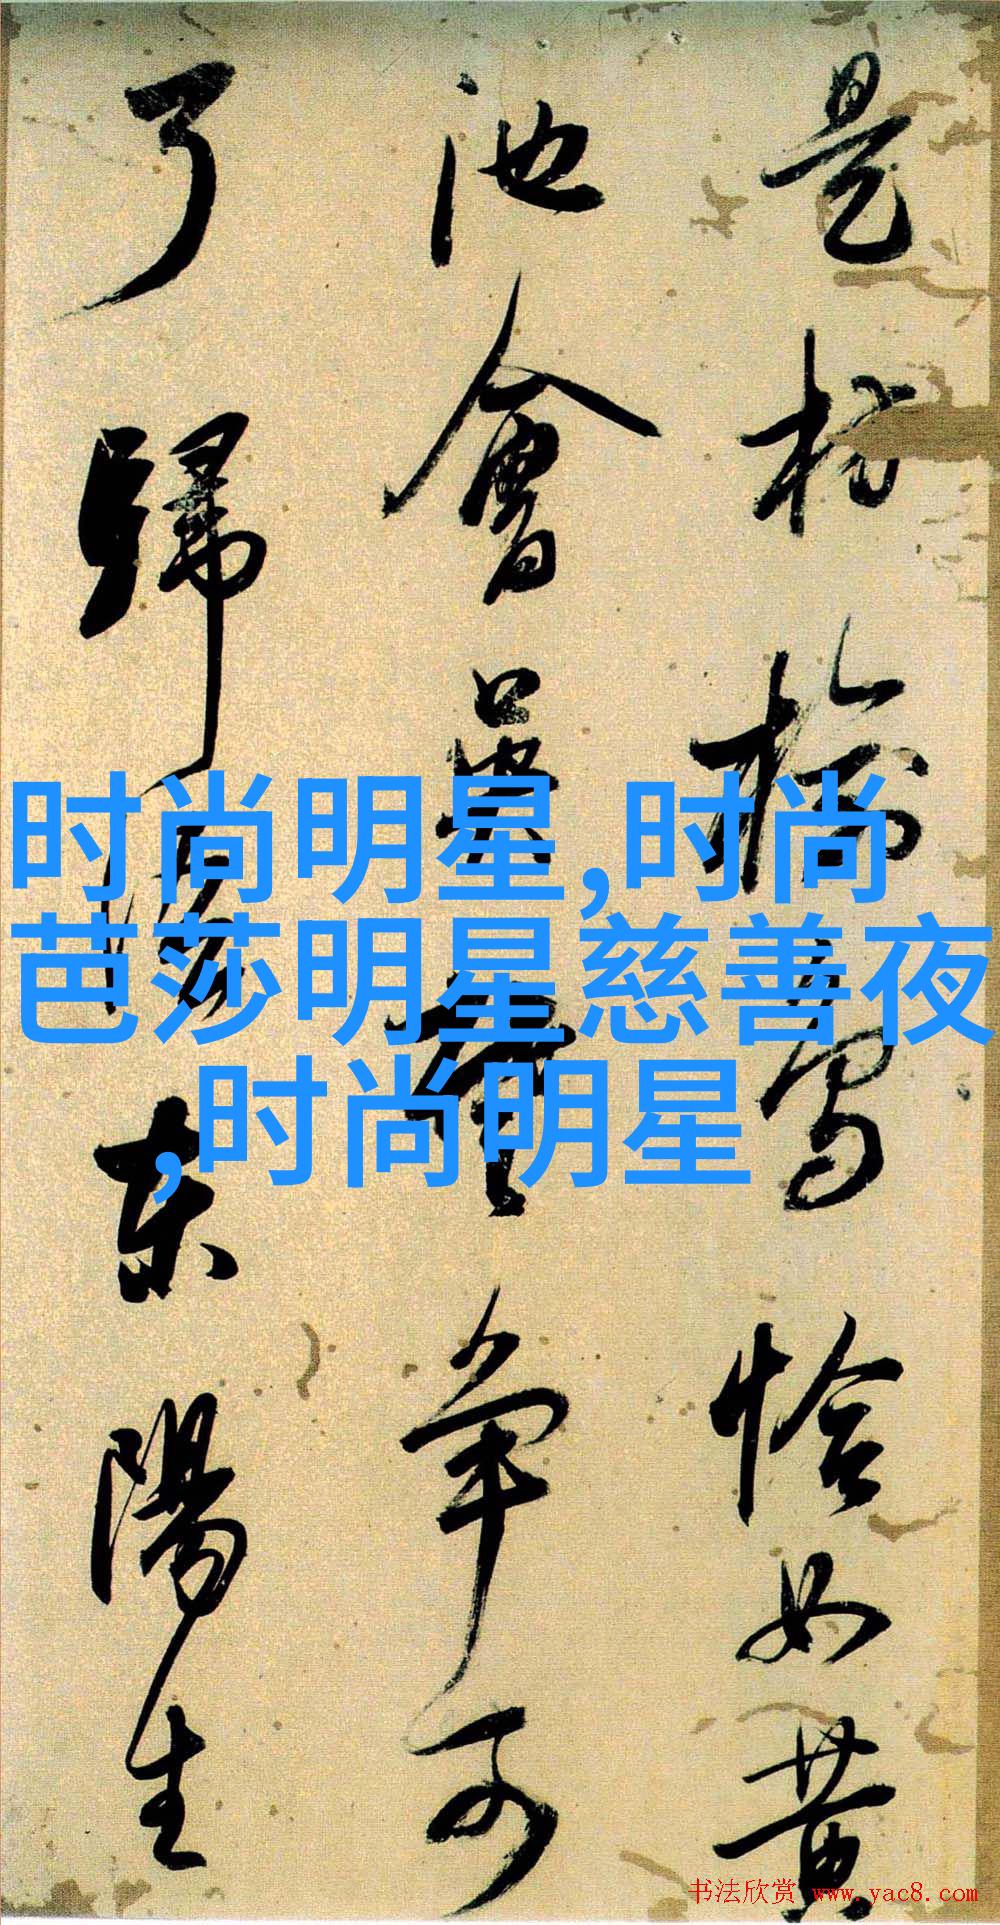 是枋榆寫恰如黄
池會吴争
了歸東陽生
时尚明星,时尚
芭莎明星慈善夜
,时尚明星
书法欣赏 www.yac8.com